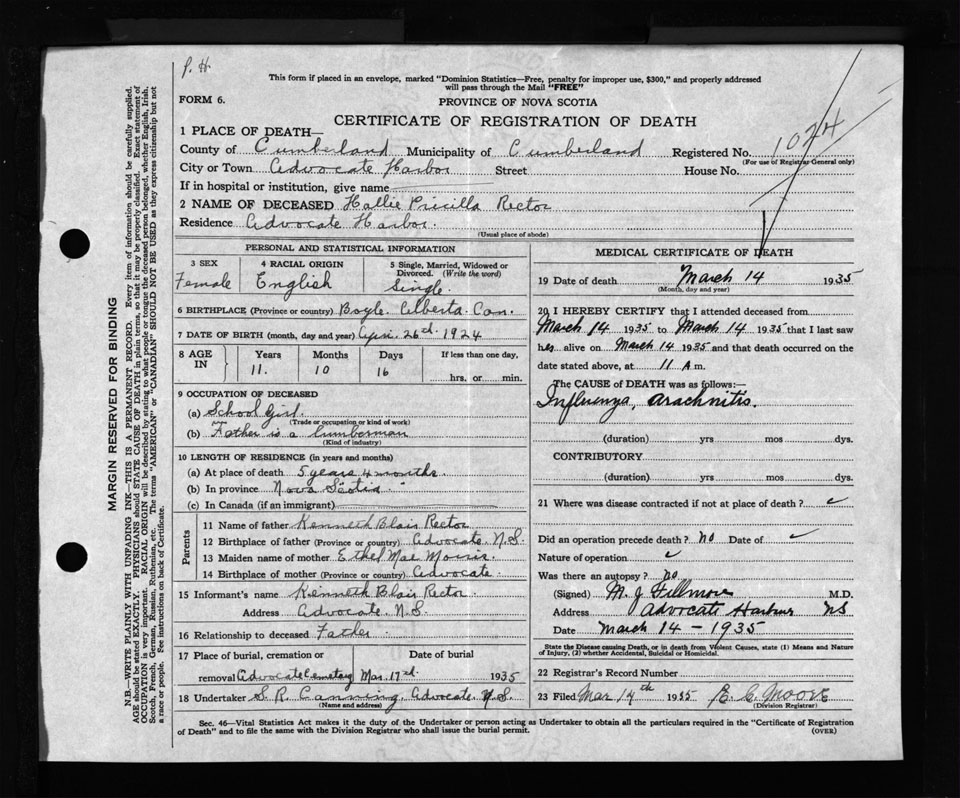 P. H.
This form if placed in an envelope, marked "Dominion Statistics—Free, penalty for improper use, $300," and properly addressed
will pass through the Mail "FREE"
FORM 6.
PROVINCE OF NOVA SCOTIA
CERTIFICATE OF REGISTRATION OF DEATH
1024
1 PLACE OF DEATH—
County of Cumberland Municipality of Cumberland Registered No.
(For use of Registrar General only)
City or Town Advocate Harbor Street House No.
If in hospital or institution, give name
2 NAME OF DECEASED Hallie Pricilla Rector
Residence Advocate Harbor.
(Usual place of abode)
PERSONAL AND STATISTICAL INFORMATION
3 SEX 4 RACIAL ORIGIN 5 Single, Married, Widowed or
Divorced. (Write the word)
Female English Single.
6 BIRTHPLACE (Province or country) Boyle. Alberta. Can.
7 DATE OF BIRTH (month, day and year) Apr. 26th. 1924
8 AGE IN Years Months Days If less than one day,
11. 10 16 hrs. or min.
9 OCCUPATION OF DECEASED
(a) School Girl.
(Trade or occupation or kind of work)
(b) Father is a lumberman
(Kind of industry)
10 LENGTH OF RESIDENCE (in years and months)
(a) At place of death 5 years 4 months.
(b) In province Nova Scotia "
(c) In Canada (if an immigrant)
Parents
11 Name of father Kenneth Blair Rector
12 Birthplace of father (Province or country) Advocate. N.S.
13 Maiden name of mother Ethel Mae Morris.
14 Birthplace of mother (Province or country) Advocate.
15 Informant's name Kenneth Blair Rector.
Address Advocate. N.S.
16 Relationship to deceased Father.
17 Place of burial, cremation or removal Date of burial
Advocate Cemetary Mar. 17th. 1935
18 Undertaker S. R. Canning, Advocate. N.S.
(Name and address)
MEDICAL CERTIFICATE OF DEATH
19 Date of death March 14 1935
(Month, day and year)
20 I HEREBY CERTIFY that I attended deceased from
March 14 1935 to March 14 1935 that I last saw
her alive on March 14 1935 and that death occurred on the
date stated above, at 11 A m.
The CAUSE of DEATH was as follows:—
Influenza, arachnitis.
(duration) yrs mos dys.
CONTRIBUTORY
(duration) yrs mos dys.
21 Where was disease contracted if not at place of death?
Did an operation precede death? no Date of
Nature of operation
Was there an autopsy? no
(Signed) M. J. Fillmore M.D.
Address Advocate Harbour NS
Date March 14 – 1935
State the Disease causing Death, or in death from Violent Causes, state (1) Means and Nature
of Injury, (2) whether Accidental, Suicidal or Homicidal.
22 Registrar's Record Number
23 Filed Mar 14th 1935 E. C. Moore
(Division Registrar)
Sec. 46—Vital Statistics Act makes it the duty of the Undertaker or person acting as Undertaker to obtain all the particulars required in the "Certificate of Registration
of Death" and to file the same with the Division Registrar who shall issue the burial permit. (OVER)
MARGIN RESERVED FOR BINDING
N.B.—WRITE PLAINLY WITH UNFADING INK—THIS IS A PERMANENT RECORD. Every item of information should be carefully supplied.
AGE should be stated EXACTLY. PHYSICIANS should STATE CAUSE OF DEATH in plain terms, so that it may be properly classified. Exact statement of
OCCUPATION is very important. RACIAL ORIGIN will be described by stating to what people or tongue the deceased person belonged, whether English, Irish,
Scotch, French, German, Russian, Ruthenian, etc. The terms "AMERICAN" or "CANADIAN" SHOULD NOT BE USED as they express citizenship but not
a race or people. See instructions on back of Certificate.